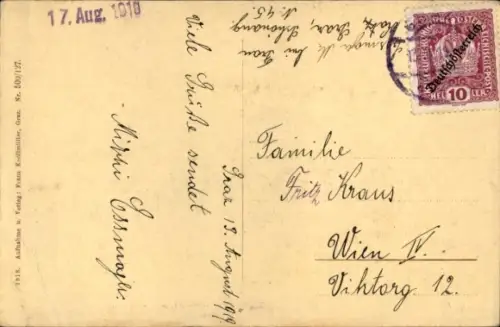 17. Aug. 1919
N: 45.
Graz,
bei Frau
Viele Grüße sendet
Mizzi
Graz 13. August 1919.
Familie
Fritz Kraus
Wien IV.
Viktorg. 12.
Deutschösterreich
10
HELLER
1918. Aufnahme u. Verlag: Franz Knollmüller, Graz. Nr. 509/127.